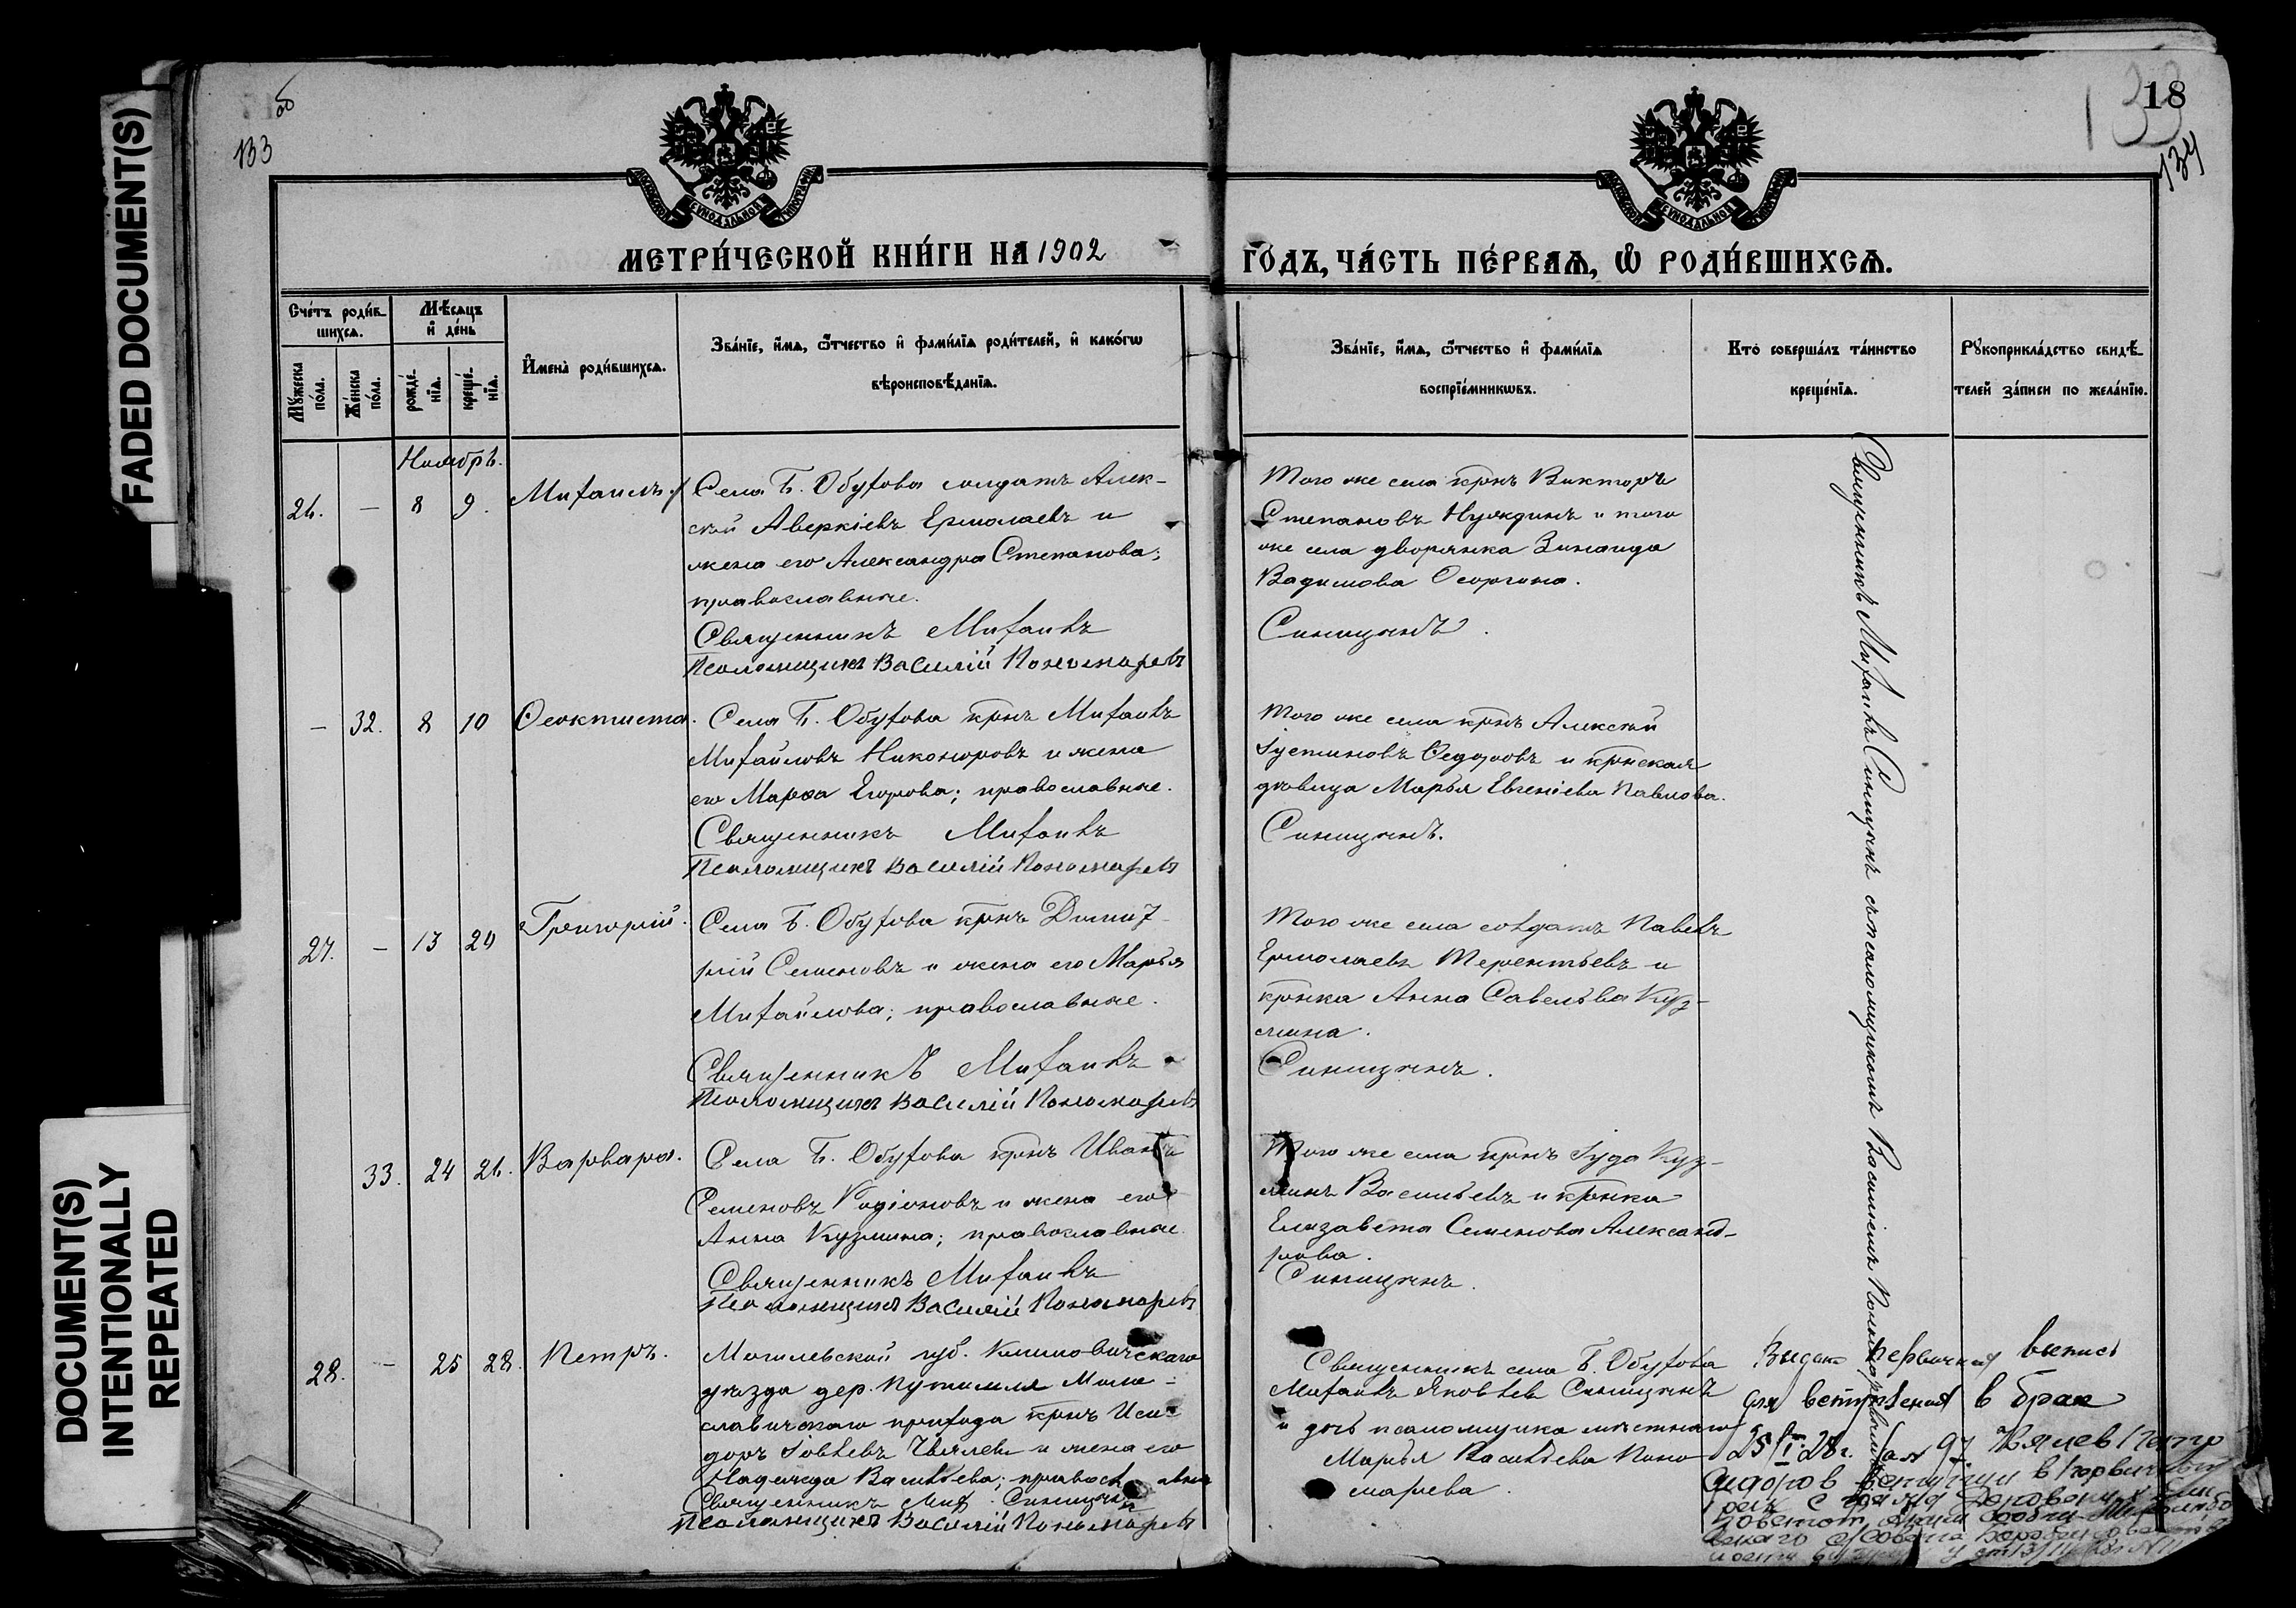 FADED DOCUMENT(S)
DOCUMENT(S)
INTENTIONALLY
REPEATED
об
133
18
133
134
МЕТРИ́ЧЕСКОЙ КНИ́ГИ НА 1902
ГОДЪ, ЧА́СТЬ ПЕ́РВАѦ, Ѡ҆ РОДИ́ВШИХСѦ.
Сче́тъ роди́в-
шихсѧ.
Мѣ́сѧцъ
и҆ де́нь
Мꙋ́жеска
по́ла.
Же́нска
по́ла.
рожде́-
нїѧ.
креще́-
нїѧ.
И҆мена̀ роди́вшихсѧ.
Зва́нїе, и҆́мѧ, ѻ҆́тчество и҆ фами́лїѧ роди́телей, и҆ како́гѡ
вѣроисповѣ́данїѧ.
Зва́нїе, и҆́мѧ, ѻ҆́тчество и҆ фами́лїѧ
воспрїе́мникѡвъ.
Кто̀ соверша́лъ та́инство
креще́нїѧ.
Рꙋкоприкла́дство свидѣ́-
телей за́писи по жела́нїю.
Ноябрь.
26. — 8 9. Михаилъ
Села Б. Обухова солдатъ Алек-
сѣй Аверкіевъ Ермолаевъ и
жена его Александра Степанова;
православные.
Священникъ Михаилъ
Псаломщикъ Василій Пономаревъ
Того же села крнъ Викторъ
Степановъ Нуждинъ и того
же села дворянка Зинаида
Вадимова Осоргина.
Синицынъ.
— 32. 8 10 Ѳеоктиста.
Села Б. Обухова крнъ Михаилъ
Михайловъ Никоноровъ и жена
его Марѳа Егорова; православные.
Священникъ Михаилъ
Псаломщикъ Василій Пономаревъ
Того же села крнъ Алексѣй
Іустиновъ Ѳедоровъ и крнская
дѣвица Марья Евгеніева Павлова.
Синицынъ.
27. — 13 20 Григорій.
Села Б. Обухова крнъ Димит-
рій Семеновъ и жена его Марья
Михайлова; православные.
Священникъ Михаилъ
Псаломщикъ Василій Пономаревъ
Того же села солдатъ Павелъ
Ермолаевъ Терентьевъ и
крнка Анна Савельева Куз-
мина.
Синицынъ.
33. 24 26. Варвара.
Села Б. Обухова крнъ Иванъ
Семеновъ Родіоновъ и жена его
Анна Кузмина; православные.
Священникъ Михаилъ
Псаломщикъ Василій Пономаревъ
Того же села крнъ Іуда Куз-
минъ Васильевъ и крнка
Елизавета Семенова Александ-
рова.
Синицынъ.
28. — 25 28. Петръ.
Могилевской губ. Климовичскаго
уѣзда дер. Путимля Мило-
славичскаго прихода крнъ Иси-
доръ Іовлевъ и жена его
Надежда Васильева; православные
Священникъ Мих. Синицынъ
Псаломщикъ Василій Пономаревъ
Священникъ села Б. Обухова
Михаилъ Яковлевъ Синицынъ
и дочь псаломщика мѣстнаго
Марья Васильева Поно-
марева.
Священникъ Михаилъ Синицынъ съ псаломщикомъ Василіемъ Пономаревымъ
Выдана первичная выпись
для вступления в брак
25/I 28 г. за № 97